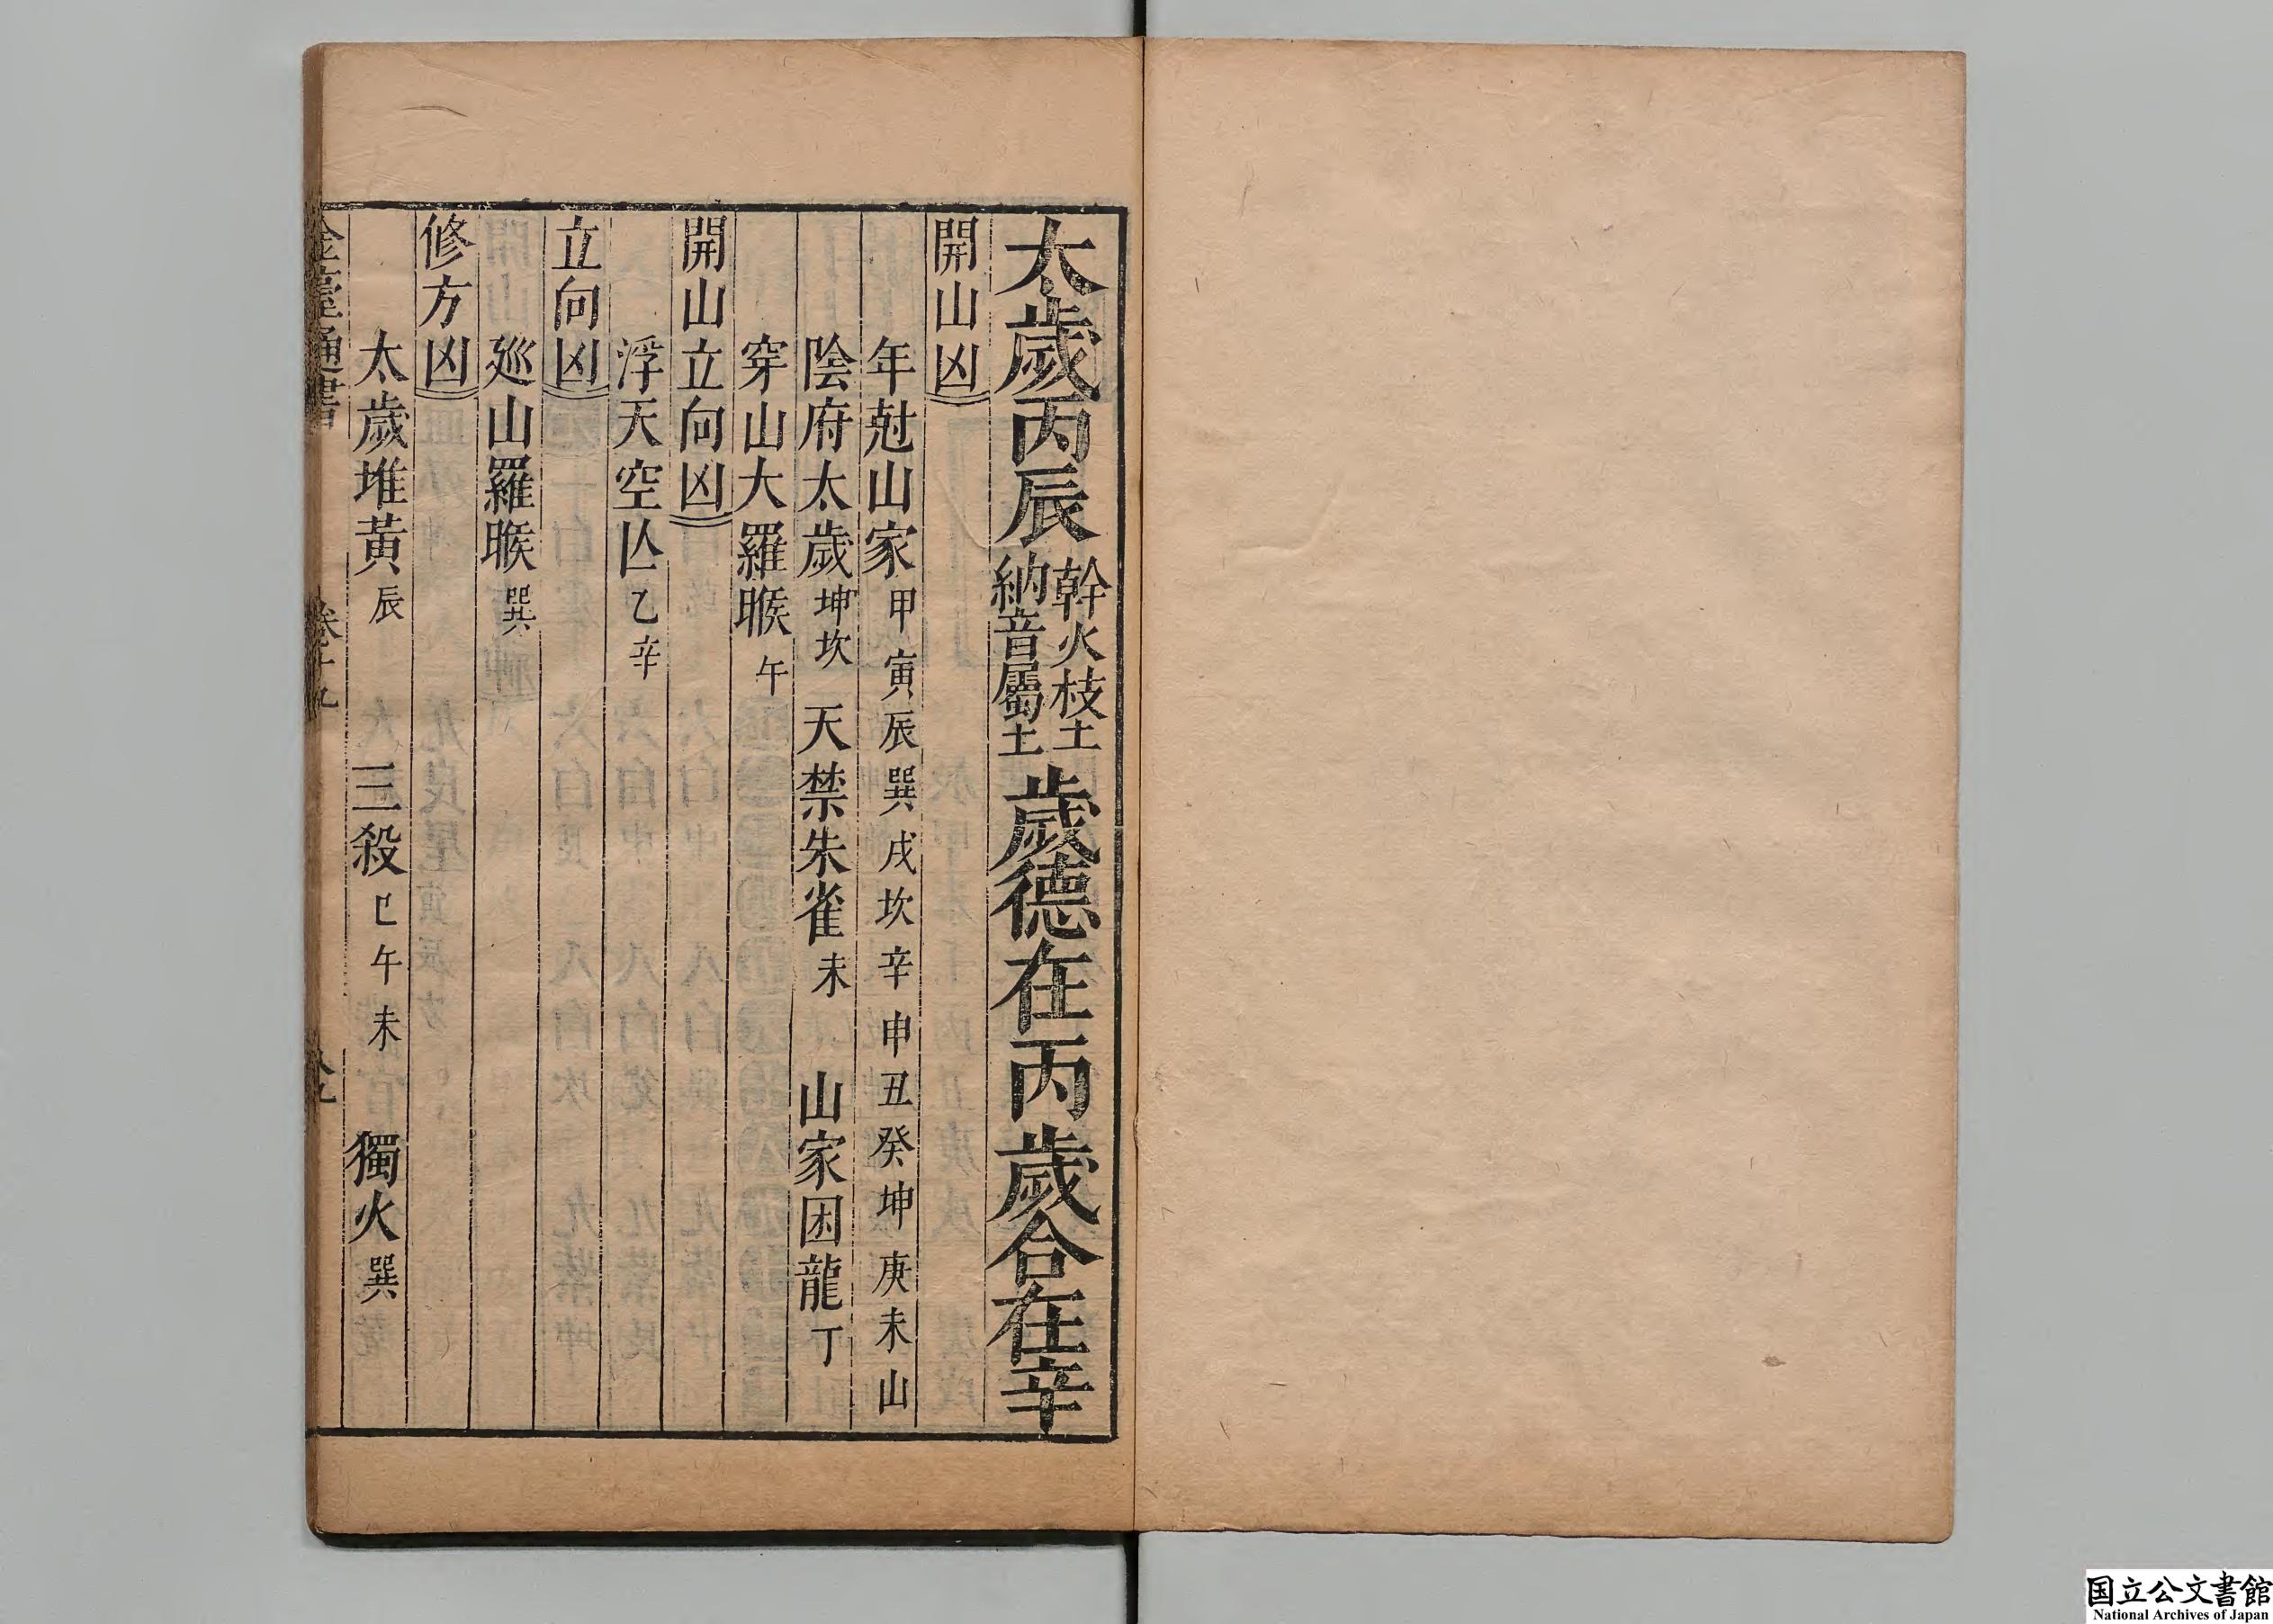 太歲丙辰幹火枝土納音屬土歲德在丙歲合在辛
開山凶
年尅山家甲寅辰巽戌坎辛申丑癸坤庚未山
陰府太歲坤坎 天禁朱雀未 山家困龍丁
穿山大羅睺午
開山立向凶
浮天空亾乙辛
立向凶
廵山羅睺巽
修方凶
太歲堆黃辰 三殺巳午未 獨火巽
通書 卷十九
国立公文書館
National Archives of Japan